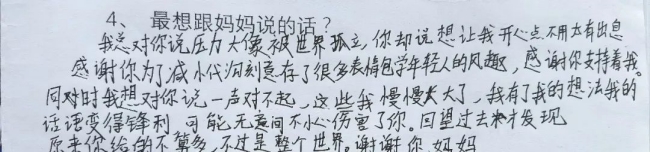 4、 最想跟妈妈说的话？
我总对你说压力大像被世界孤立，你却说想让我开心点不用太有出息
感谢你为了减小代沟刻意存了很多表情包学年轻人的风趣，感谢你支持着我。
同对时我想对你说一声对不起，这些我慢慢长大了，我有了我的想法我的
话语变得锋利 可能无意间不小心伤害了你。回望过去来才发现
原来你给的不算多，不过是整个世界。谢谢你 妈妈